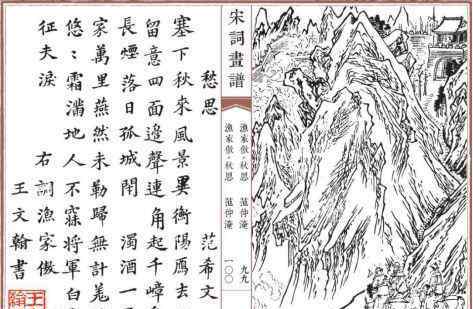 宋詞畫譜
漁家傲·秋思 范仲淹 九九
漁家傲·秋思 范仲淹 一〇〇
愁思 范希文
塞下秋來風景異衡陽鴈去
留意四面邊聲連角起千嶂
長煙落日孤城閉 濁酒一
家萬里燕然未勒歸無計羌
悠〻霜滿地人不寐將軍白
征夫淚 右調漁家傲
王文翰書